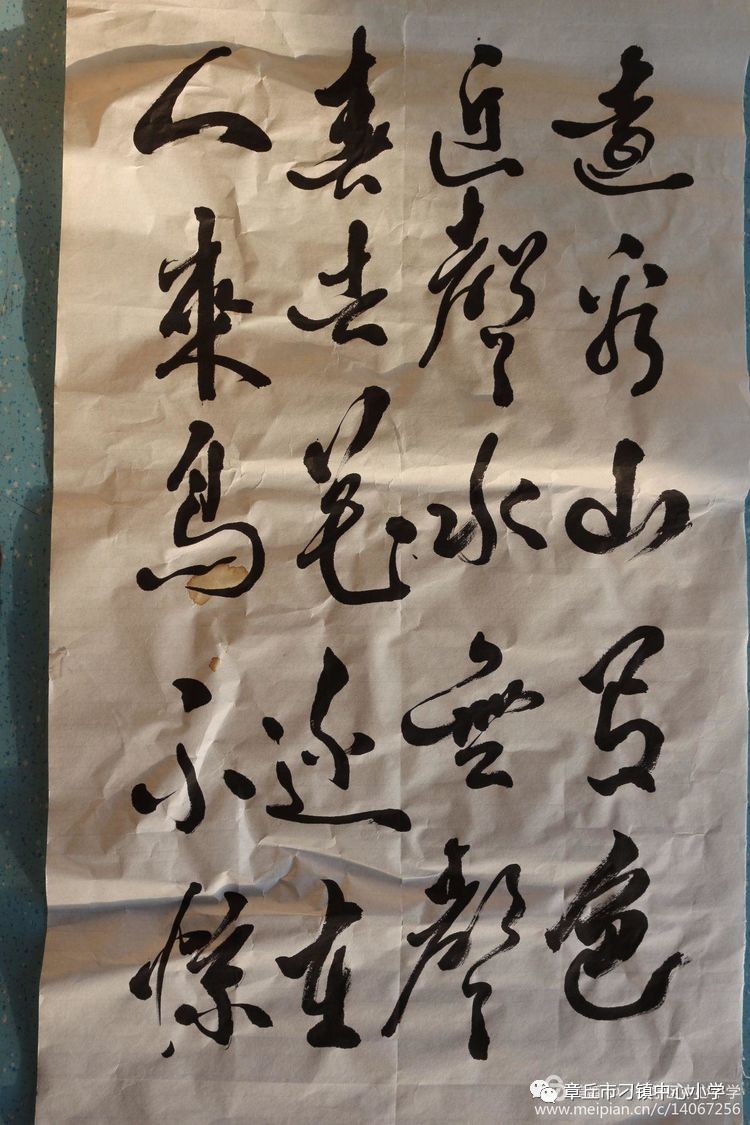 遠看山有色
近聲水無聲
春去花还在
人來鳥不惊
章丘市刁镇中心小学
www.meipian.cn/c/14067256